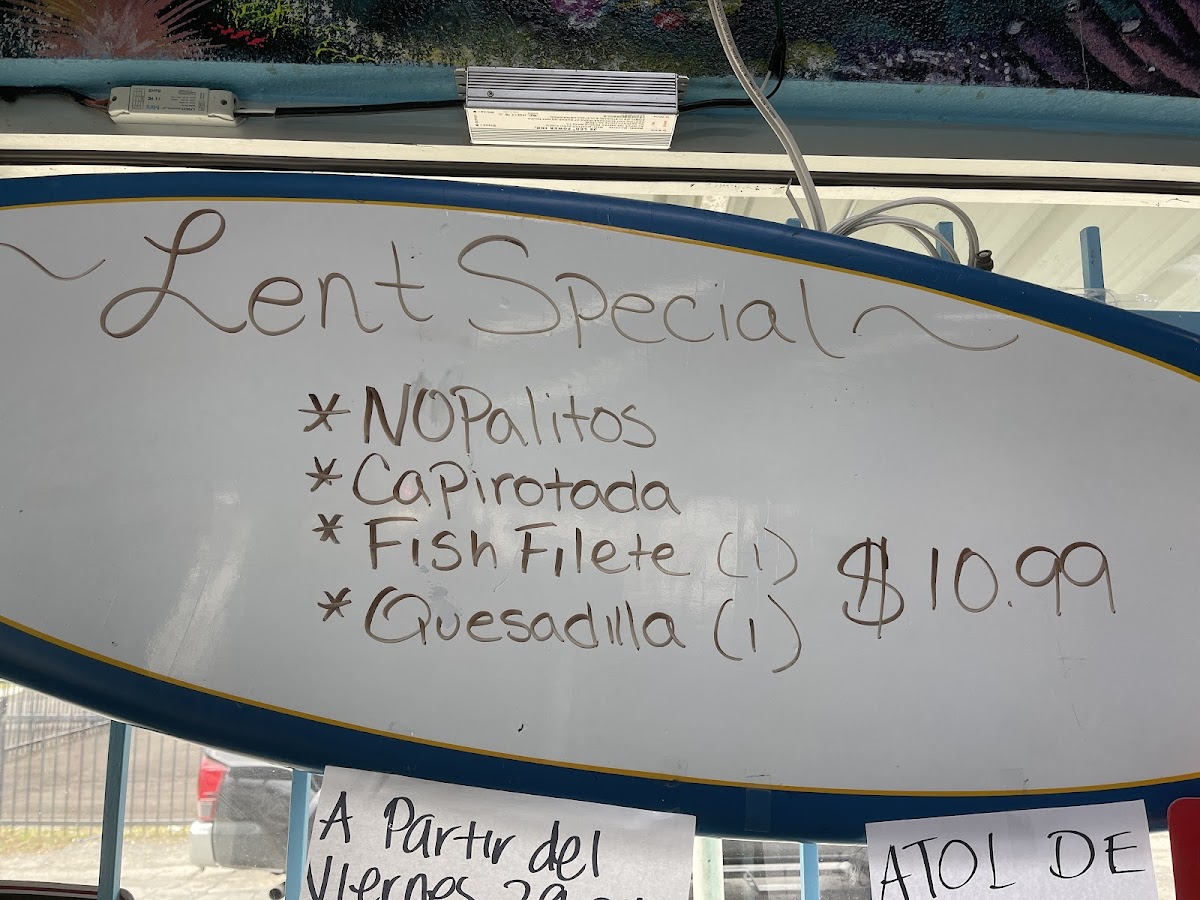 ~Lent Special~
* NOPalitos
* Capirotada
* Fish Filete (1)
* Quesadilla (1)
$10.99
A Partir del
Viernes
ATOL DE